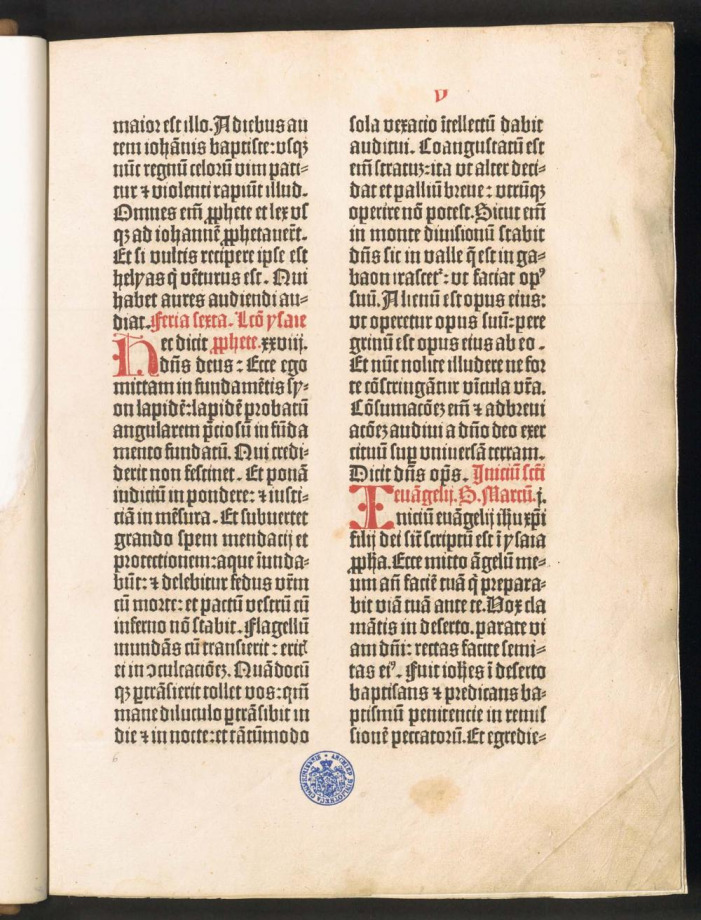 v
maior est illo. A diebus au
tem iohānis baptiste: vsqȝ
nūc regnū celorū vim pati⸗
tur ⁊ violenti rapiūt illud.
Omnes em̄ ꝓphete et lex vs
qȝ ad iohannē ꝓphetauerūt.
Et si vultis recipere ipse est
helyas q̇ vēturus est. Qui
habet aures audiendi au⸗
diat. Feria sexta. Lcō ysaie
et dicit ꝓphete. xxviij.
Hdn̄s deus: Ecce ego
mittam in fundamētis sy⸗
on lapidē: lapidē probatū
angularem p̄ciosū in fūda
mento fundatū. Qui credi⸗
derit non festinet. Et ponā
iudiciū in pondere: ⁊ iusti⸗
ciā in mēsura. Et subuertet
grando spem mendacij et
protectionem: aque īunda⸗
būt: ⁊ delebitur fedus vr̄m
cū morte: et pactū vestrū cū
inferno nō stabit. Flagellū
inundās cū transierit: eritꝭ
ei in ɔculcatiōeȝ. Quādocū
qȝ ptrāsierit tollet vos: qm̄
mane diluculo ptrāsibit in
die ⁊ in nocte: et tātūmodo
sola vexatio ītellectū dabit
auditui. Coangustatū est
em̄ stratuȝ: ita vt alter deci⸗
dat et palliū breue: vtrūqȝ
operire nō potest. Sicut em̄
in monte diuisionū stabit
dn̄s sic in valle q̄ est in ga⸗
baon irascet᷑: vt faciat opꝰ
suū. Alienū est opus eius:
vt operetur opus suū: pere
grinū est opus eius ab eo.
Et nūc nolite illudere ne for
te cōstringātur vīcula vr̄a.
Cōsumatōeȝ em̄ ⁊ adbreui
atōeȝ audiui a dn̄o deo exer
cituū suꝑ vniuersā terram.
Dicit dn̄s op̄s. Iniciū scti
euāgelij. S. Marcū. j.
Iniciū euāgelij ihu xp̄i
filij dei siē scriptū est ī ysaia
ꝓpha. Ecce mitto āgelū me⸗
um añ faciē tuā q̇ prepara⸗
bit viā tuā ante te. Vox cla
mātis in deserto. parate vi
am dn̄i: rectas facite semi⸗
tas eiꝰ. Fuit iohes ī deserto
baptisans ⁊ predicans ba⸗
ptismū penitencie in remis
sionē peccatorū. Et egredie⸗